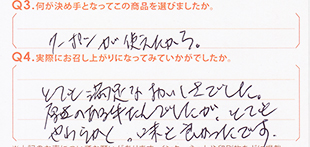 Q3.何が決め手となってこの商品を選びましたか。
クーポンが使えたから。
Q4.実際にお召し上がりになってみていかがでしたか。
とても満足なおいしさでした。
厚みのある牛たんでしたが、とても
やわらかく、味も良かったです。